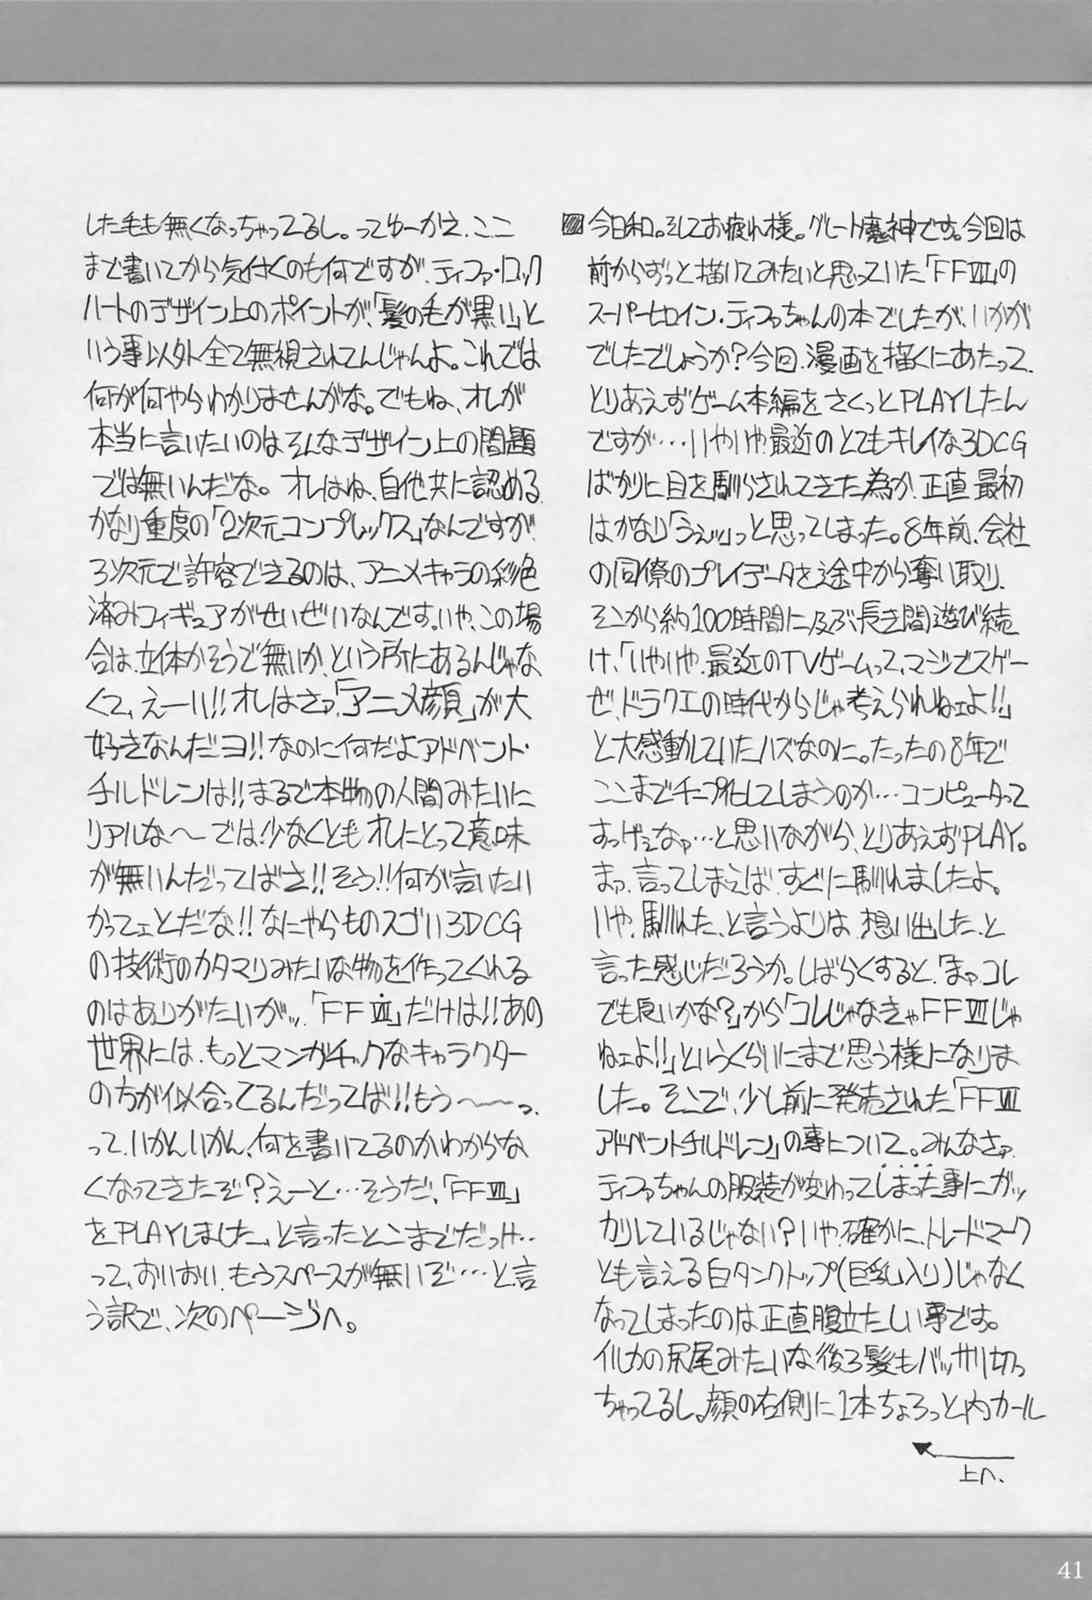 今日和。そしてお疲れ様。グレート魔神です。今回は
前からずっと描いてみたいと思っていた「FFⅦ」の
スーパーヒロイン・ティファちゃんの本でしたが、いかが
でしたでしょうか?今回、漫画を描くにあたって、
とりあえずゲーム本編をさくっとPLAYしたん
ですが…いやいや最近のとてもキレイな3DCG
ばかりに目を馴らされてきた為か、正直最初
はかなり「うぇッ」っと思ってしまった。8年前、会社
の同僚のプレイデータを途中から奪い取り、
そこから約100時間に及ぶ長き間遊び続
け、「いやいや、最近のTVゲームって、マジでスゲー
ぜ、ドラクエの時代からじゃ考えられねェよ!!」
と大感動していたハズなのに。たったの8年で
ここまでチープ化してしまうのか…コンピュータって
すっげぇなァ…と思いながら、とりあえずPLAY。
まァ、言ってしまえば、すぐに馴れましたよ。
いや、馴れた、と言うよりは、想い出した、と
言った感じだろうか。しばらくすると、「まァ、コレ
でも良いかな?」から「コレじゃなきゃFFⅦじゃ
ねェよ!!」というくらいにまで思う様になりま
した。そこで、少し前に発売された「FFⅦ
アドベントチルドレン」の事について。みんなさァ、
ティファちゃんの服装が変わってしまった事にガッ
カリしているじゃない?いや、確かに、トレードマーク
とも言える白タンクトップ(巨乳入り)じゃなく
なってしまったのは正直腹立たしい事です。
イルカの尻尾みたいな後ろ髪もバッサリ切っ
ちゃってるし。顔の右側に1本ちょろっと内カール
上へ、
した毛も無くなっちゃってるし。ってゆーかえ、ここ
まで書いてから気付くのも何ですが、ティファ・ロック
ハートのデザイン上のポイントが、「髪の毛が黒い」と
いう事以外全て無視されてんじゃんよ。これでは
何が何やらわかりませんがな。でもね、オレが
本当に言いたいのはそんなデザイン上の問題
では無いんだな。オレはね、自他共に認める、
かなり重度の「2次元コンプレックス」なんですが、
3次元で許容できるのは、アニメキャラの彩色
済みフィギュアがせいぜいなんです。いや、この場
合は、立体かそうで無いか、という所にあるんじゃな
くて、えーい!!オレはさァ、「アニメ顔」が大
好きなんだヨ!!なのに何だよアドベント・
チルドレンは!!まるで本物の人間みたいに
リアルな〜では少なくともオレにとって意味
が無いんだってばさ!!そう!!何が言いたい
かってェとだな!!なにやらものスゴい3DCG
の技術のカタマリみたいな物を作ってくれる
のはありがたいがッ、「FFⅦ」だけは!!あの
世界には、もっとマンガチックなキャラクター
の方が似合ってるんだってば!!もう〜〜っ、
って、いかん、いかん、何を書いてるのかわからな
くなってきたぞ?えーと…そうだ、「FFⅦ」
をPLAYしました、と言ったとこまでだっけ…
って、おいおい、もうスペースが無いぞ…と、言
う訳で、次のページへ。
41